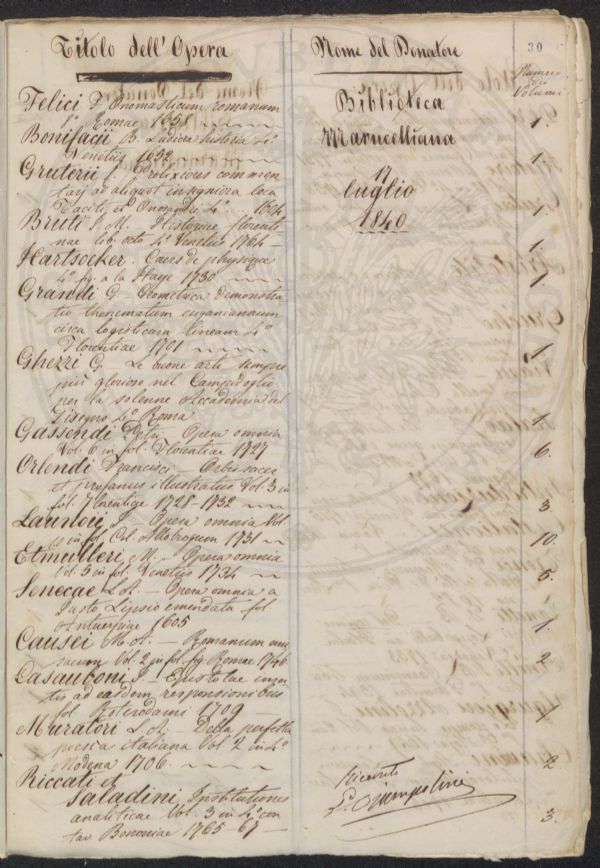 Titolo dell'Opera
Nome del Donatore
30
Numero
di
Volumi
Biblioteca
Marucelliana
17
Luglio
1840
Felici F. Onomasticum romanum
4.° Romae 1658
1.
Bonifacii B. Ludicra historia 4.°
Venetiis 1652
1.
Gruterii J. Prolixiores commen
tarj ad aliquot insigniora loca
Taciti, et Onosandri 4.° 1604
1.
Bruti J. M. Historiae florenti
nae lib. octo 4.° Venetiis 1764
1.
Hartsoeker. Cours de physique
4.° fig. a la Haye 1730
1
Grandi G. Geometrica demonstra
tio theorematum hugenianorum
circa logisticam lineam 4.°
Florentiae 1701
1
Ghezzi G. Le buone arti sempre
più gloriose nel Campidoglio
per la solenne Accademia del
Disegno 4.° Roma
1.
Gassendi Petri Opera omnia
Vol. 6 in fol. Florentiae 1727
6.
Orlendi Francisci Orbis sacer
et profanus illustratus Vol. 3 in
fol. Florentiae 1728-1732
3
Launoii J. Opera omnia Vol.
in fol. Col. Allobrogum 1731
10.
Etmulleri M. Opera omnia
Vol. 5 in fol. Venetiis 1734
5.
Senecae L. A. Opera omnia a
Justo Lipsio emendata fol.
Antuerpiae 1605
1
Causei M. A. Romanum mu
saeum Vol. 2 in fol. fig. Romae 1746
2
Casauboni J. Epistolae inser
tis ad easdem responsionibus
fol. Roterodami 1709
1
Muratori L. A. Della perfetta
poesia italiana Vol. 2 in 4.°
Modena 1706
2
Riccati et
Saladini Institutiones
analiticae Vol. 3 in 4.° con
tav. Bononiae 1765-67
3.